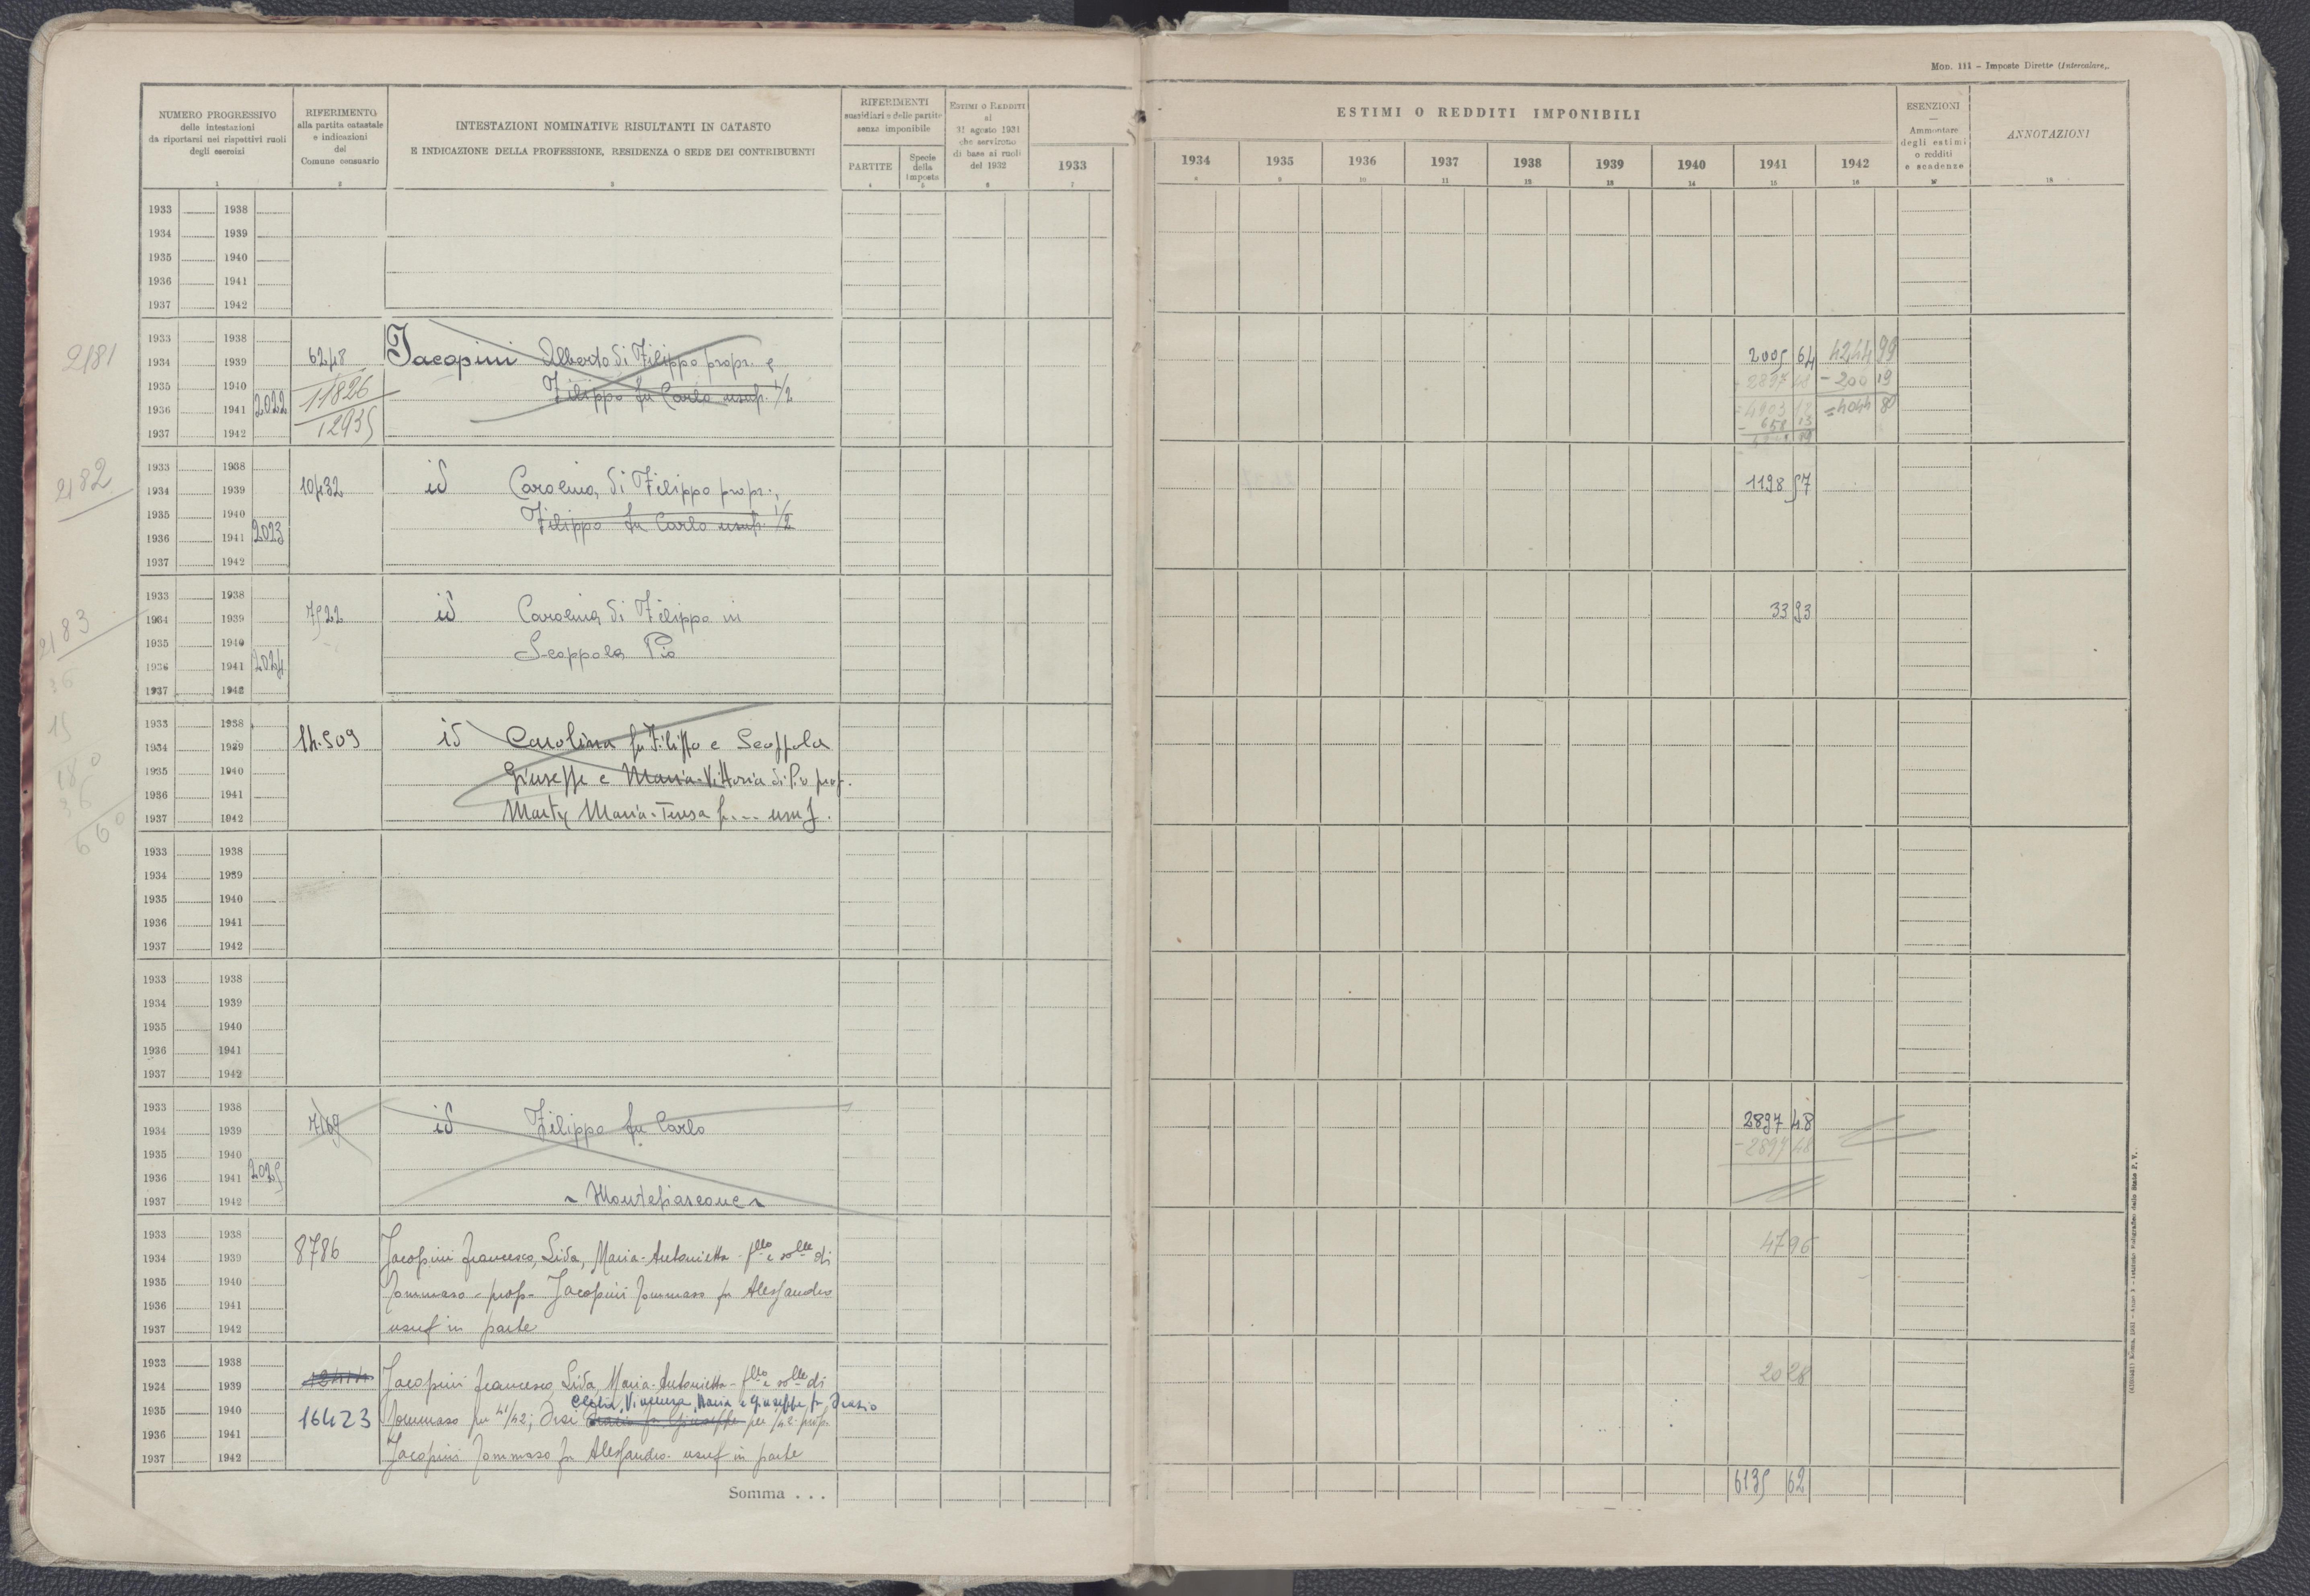 Mod. 111 – Imposte Dirette (Intercalare).
NUMERO PROGRESSIVO
delle intestazioni
da riportarsi nei rispettivi ruoli
degli esercizi
1
RIFERIMENTO
alla partita catastale
e indicazioni
del
Comune censuario
2
INTESTAZIONI NOMINATIVE RISULTANTI IN CATASTO
E INDICAZIONE DELLA PROFESSIONE, RESIDENZA O SEDE DEI CONTRIBUENTI
3
RIFERIMENTI
sussidiari e delle partite
senza imponibile
PARTITE
4
Specie
della
Imposta
5
ESTIMI O REDDITI
al
31 agosto 1931
che servirono
di base ai ruoli
del 1932
6
ESTIMI O REDDITI IMPONIBILI
1933
7
1934
8
1935
9
1936
10
1937
11
1938
12
1939
13
1940
14
1941
15
1942
16
ESENZIONI
Ammontare
degli estimi
o redditi
e scadenze
17
ANNOTAZIONI
18
1933 1938
1934 1939
1935 1940
1936 1941
1937 1942
2181
1933 1938
1934 1939 6248 Jacopini Alberto di Filippo propr. e 2005 64 4244 99
1935 1940 11826 Filippo fu Carlo usuf. 1/2 - 2897 48 - 200 19
1936 1941 2022 12935 = 4903 12 = 4044 80
1937 1942 - 658 13
2182
1933 1938
1934 1939 10432 id Carolina di Filippo propr., 1198 57
1935 1940 Filippo fu Carlo usuf. 1/2
1936 1941 2023
1937 1942
2183
1933 1938
1934 1939 7522 id Carolina di Filippo in 33 93
1935 1940 Scoppola Pio
1936 1941 2024
1937 1942
1933 1938
1934 1939 14.509 id Carolina fu Filippo e Scoppola
1935 1940 Giuseppe e Maria-Vittoria di Pio prop.
1936 1941
1937 1942 Marty Maria-Teresa fu... usuf.
15
180
36
660
1933 1938
1934 1939
1935 1940
1936 1941
1937 1942
1933 1938
1934 1939
1935 1940
1936 1941
1937 1942
1933 1938
1934 1939 7169 id Filippo fu Carlo 2897 48
1935 1940 - 2897 48
1936 1941 2025
1937 1942 ~ Montefiascone ~
1933 1938
1934 1939 8786 Jacopini Francesco, Lida, Maria-Antonietta - f.llo e sorelle di 47 96
1935 1940 Tommaso - prop - Jacopini Tommaso fu Alessandro
1936 1941
1937 1942 usuf in parte
1933 1938
1934 1939 Jacopini Francesco, Lida, Maria-Antonietta - f.llo e sorelle di 20 28
Clelia, Vincenza, Maria e Giuseppe fu Orazio
1935 1940 16423 Tommaso per 41/42; Orsi Orazio fu Giuseppe per 1/42 prop.
1936 1941
1937 1942 Jacopini Tommaso fu Alessandro - usuf in parte
Somma . . . 6135 62